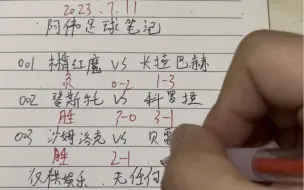 2023.7.11
阿伟足球笔记
001 精红魔 VS 卡拉巴赫
负 0-2 1-3
002 登斯托 VS 科罗拉
胜 2-0 3-1
003 沙姆洛克 VS 贝雷
胜 2-1
仅供娱乐 无任何